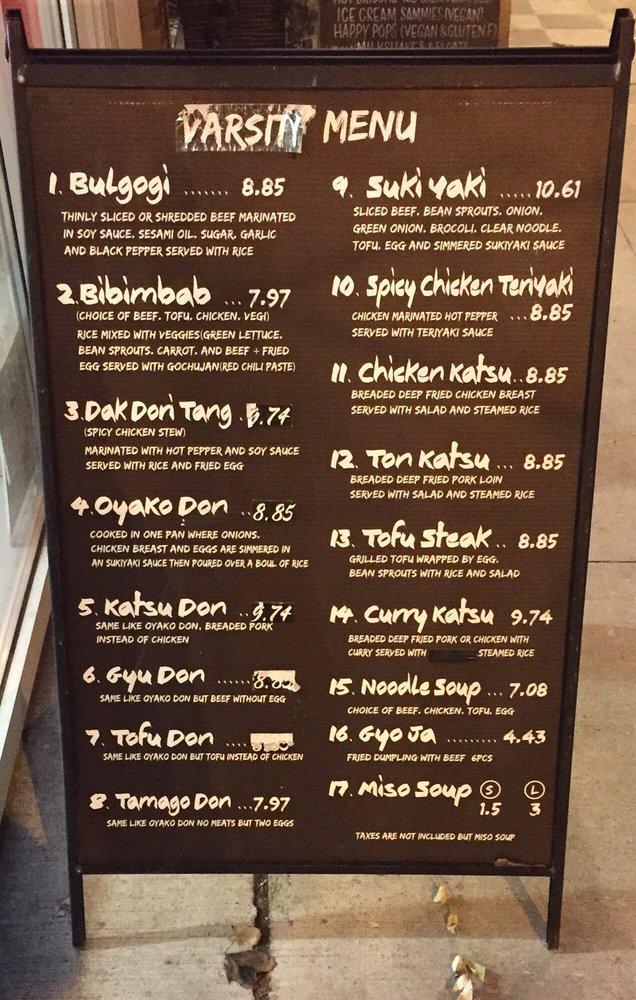 ICE CREAM SAMMIES (VEGAN)
HAPPY POPS (VEGAN & GLUTEN F
MILKSHAKES & FLOATS
VARSITY MENU
1. Bulgogi ....... 8.85
THINLY SLICED OR SHREDDED BEEF MARINATED
IN SOY SAUCE. SESAMI OIL. SUGAR. GARLIC
AND BLACK PEPPER SERVED WITH RICE
2. Bibimbab ... 7.97
(CHOICE OF BEEF. TOFU. CHICKEN. VEGI)
RICE MIXED WITH VEGGIES(GREEN LETTUCE.
BEAN SPROUTS. CARROT. AND BEEF + FRIED
EGG SERVED WITH GOCHUJAN(RED CHILI PASTE)
3. Dak Dori Tang . 9.74
(SPICY CHICKEN STEW)
MARINATED WITH HOT PEPPER AND SOY SAUCE
SERVED WITH RICE AND FRIED EGG
4. Oyako Don ... 8.85
COOKED IN ONE PAN WHERE ONIONS.
CHICKEN BREAST AND EGGS ARE SIMMERED IN
AN SUKIYAKI SAUCE THEN POURED OVER A BOUL OF RICE
5. Katsu Don ... 9.74
SAME LIKE OYAKO DON, BREADED PORK
INSTEAD OF CHICKEN
6. Gyu Don ..... 8.85
SAME LIKE OYAKO DON BUT BEEF WITHOUT EGG
7. Tofu Don .....
SAME LIKE OYAKO DON BUT TOFU INSTEAD OF CHICKEN
8. Tamago Don ... 7.97
SAME LIKE OYAKO DON NO MEATS BUT TWO EGGS
9. Suki yaki ..... 10.61
SLICED BEEF. BEAN SPROUTS. ONION.
GREEN ONION. BROCOLI. CLEAR NOODLE.
TOFU. EGG AND SIMMERED SUKIYAKI SAUCE
10. Spicy Chicken Teriyaki
CHICKEN MARINATED HOT PEPPER ... 8.85
SERVED WITH TERIYAKI SAUCE
11. Chicken Katsu.. 8.85
BREADED DEEP FRIED CHICKEN BREAST
SERVED WITH SALAD AND STEAMED RICE
12. Ton Katsu ... 8.85
BREADED DEEP FRIED PORK LOIN
SERVED WITH SALAD AND STEAMED RICE
13. Tofu Steak .. 8.85
GRILLED TOFU WRAPPED BY EGG.
BEAN SPROUTS WITH RICE AND SALAD
14. Curry Katsu 9.74
BREADED DEEP FRIED PORK OR CHICKEN WITH
CURRY SERVED WITH STEAMED RICE
15. Noodle Soup ... 7.08
CHOICE OF BEEF. CHICKEN. TOFU. EGG
16. Gyo Ja ......... 4.43
FRIED DUMPLING WITH BEEF 6PCS
17. Miso Soup S L
1.5 3
TAXES ARE NOT INCLUDED BUT MISO SOUP